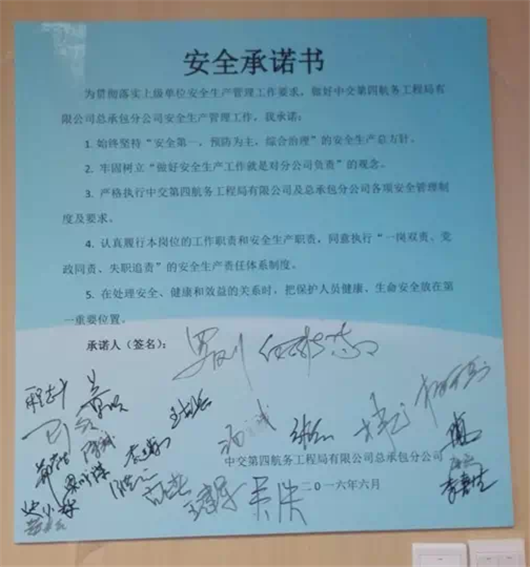 安全承诺书
为贯彻落实上级单位安全生产管理工作要求，做好中交第四航务工程局有
限公司总承包分公司安全生产管理工作，我承诺：
1. 始终坚持“安全第一，预防为主，综合治理”的安全生产总方针。
2. 牢固树立“做好安全生产工作就是对分公司负责”的观念。
3. 严格执行中交第四航务工程局有限公司及总承包分公司各项安全管理制
度及要求。
4. 认真履行本岗位的工作职责和安全生产职责，同意执行“一岗双责、党
政同责、失职追责”的安全生产责任体系制度。
5. 在处理安全、健康和效益的关系时，把保护人员健康、生命安全放在第
一重要位置。
承诺人（签名）：
中交第四航务工程局有限公司总承包分公司
二〇一六年六月